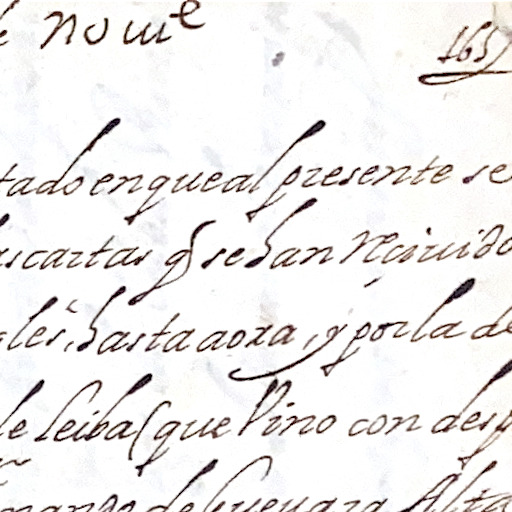 nou^e
1657
tado en que al presente se
as cartas q̃ se han Reciuido
les, hasta aora, y por la de
de Leiba (que Vino con desp
nando de Gueuara Alta